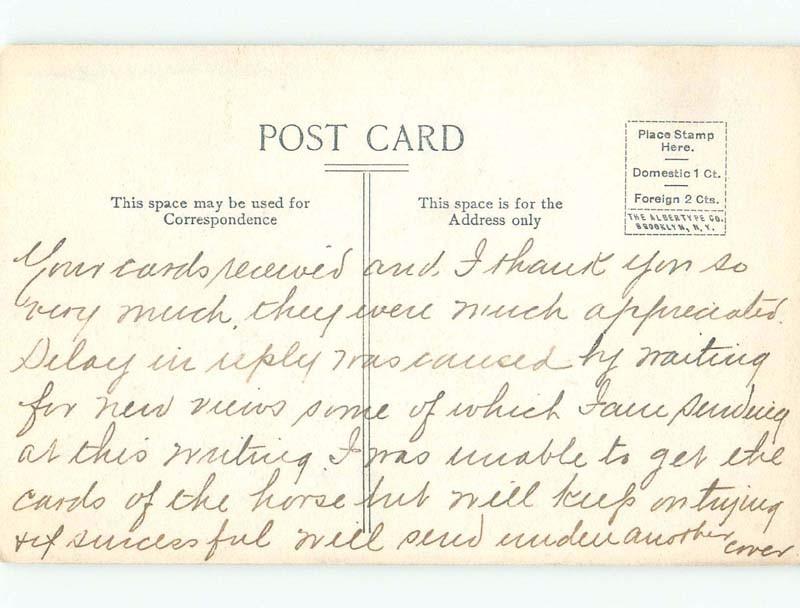 POST CARD
Place Stamp
Here.
Domestic 1 Ct.
Foreign 2 Cts.
THE ALBERTYPE CO.
BROOKLYN, N. Y.
This space may be used for
Correspondence
This space is for the
Address only
Your cards received and I thank you so
very much, they were much appreciated.
Delay in reply was caused by waiting
for new views some of which I am sending
at this writing. I was unable to get the
cards of the horse but will keep on trying
& if sucessful will send under another
cover.